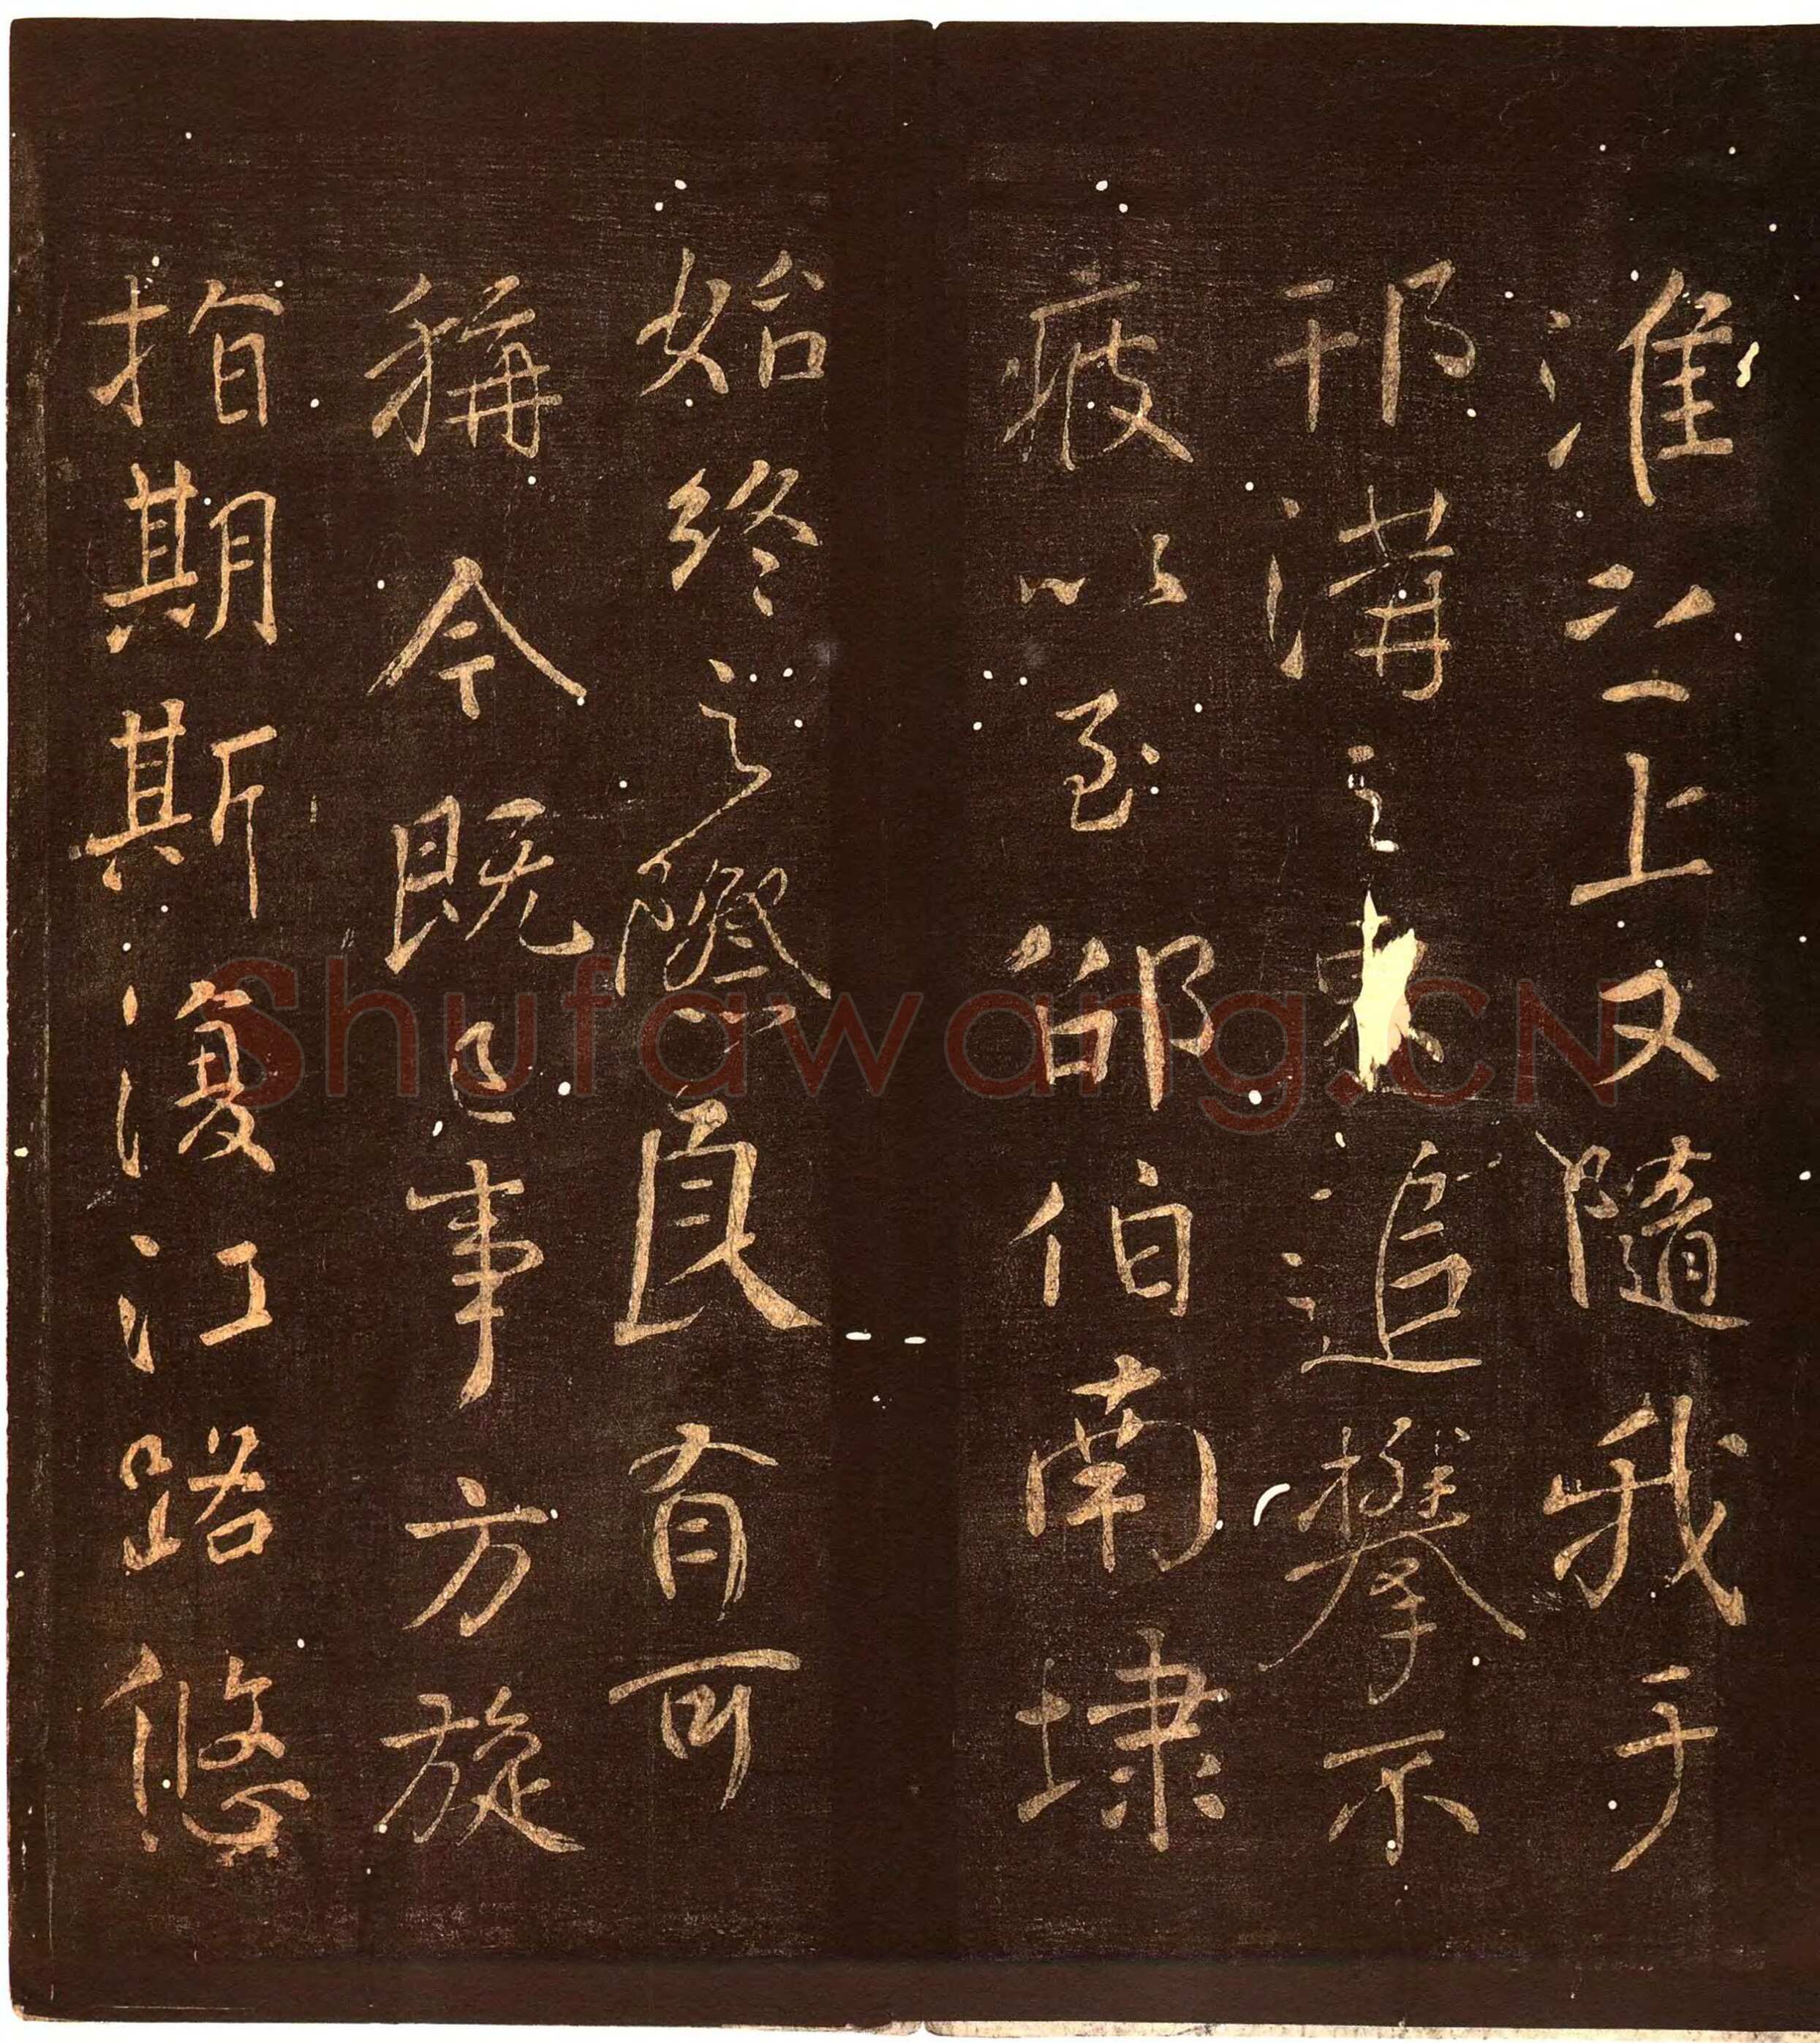 淮之上又隨我于
邗溝之東追攀不
疲以至邵伯南埭
始終之際良有可
稱今既已事方旋
指期斯復江路悠
Shufawang.CN